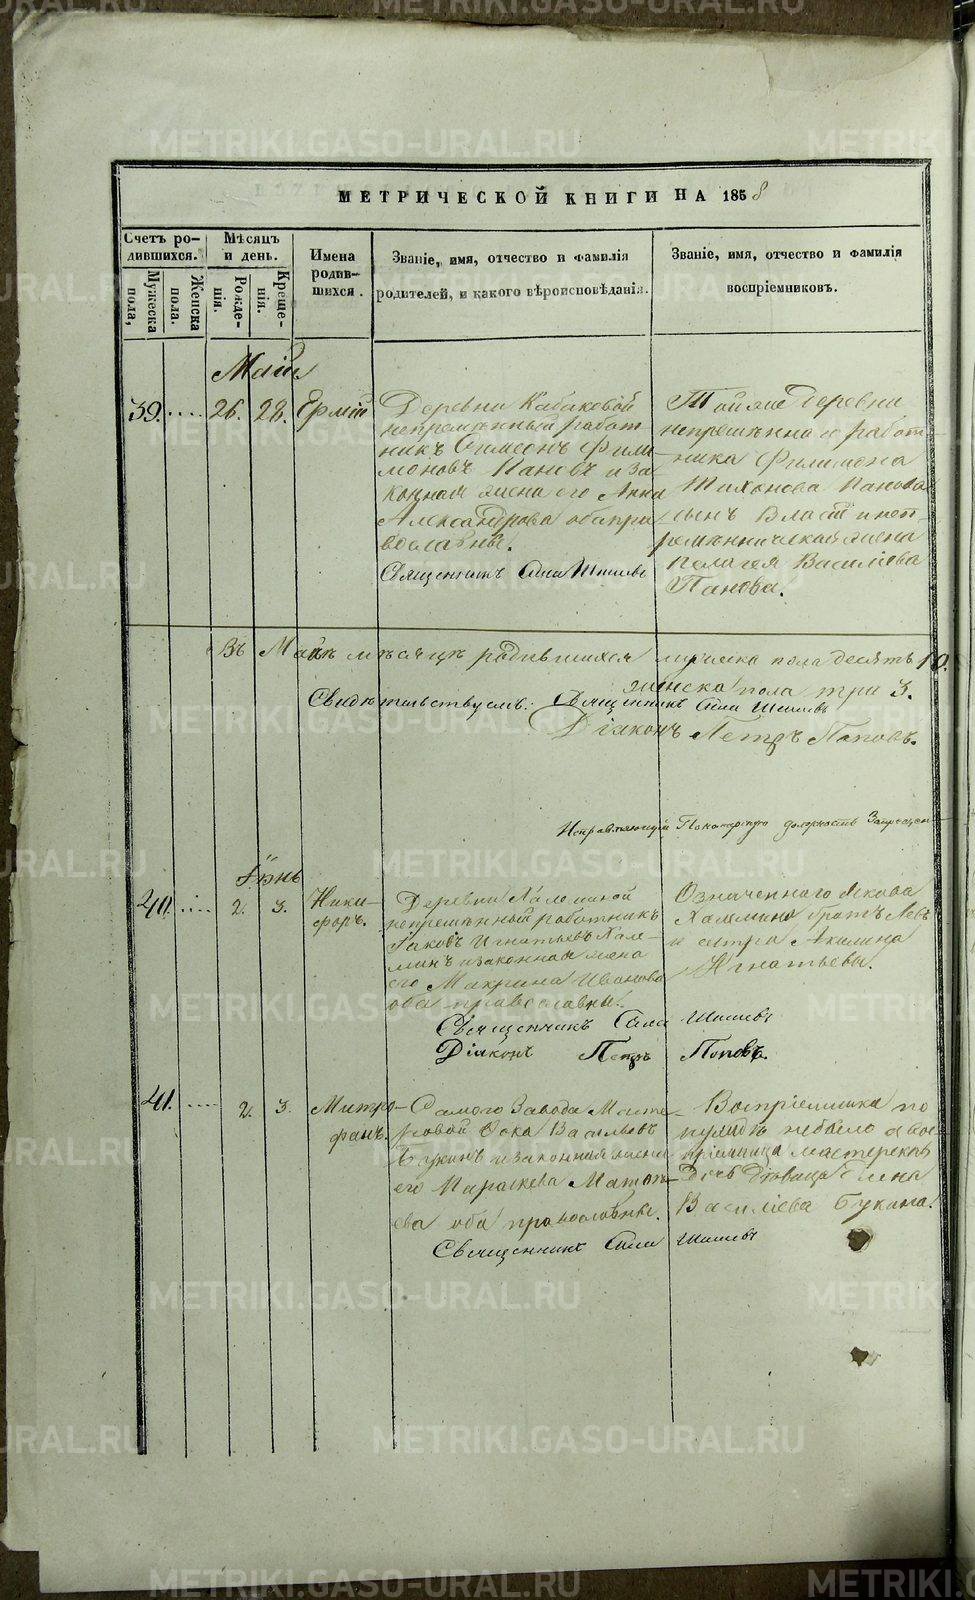 МЕТРИЧЕСКОЙ КНИГИ НА 1858
Счетъ ро-
дившихся.
Мужеска
пола,
Женска
пола.
Мѣсяцъ
и день.
Рожде-
нія.
Креще-
нія.
Имена
родив-
шихся.
Званіе, имя, отчество и фамилія
родителей, и какого вѣроисповѣданія.
Званіе, имя, отчество и фамилія
воспріемниковъ.
Май
39. 26. 28. Ермій
Деревни Кабаковой
непремѣнный работ-
никъ Симеонъ Фили-
моновъ Пановъ и за
конная жена его Анна
Александрова оба пра
вославные.
Священникъ Сила Шишевъ
Той же деревни
непремѣннаго работ-
ника Филимона
Тихонова Панова
сынъ Власъ и неп-
ремѣнническая жена
Пелагея Василіева
Панова.
Въ Маѣ мѣсяцѣ родившихся мужеска пола десять 10.
женска пола три 3.
Свидѣтельствуемъ: Священникъ Сила Шишевъ
Діаконъ Петръ Поповъ.
Исправляющій Пономарскую должность
Іюнь
40. 2. 3. Ники-
форъ.
Деревни Халеминой
непремѣнный работникъ
Іаковъ Игнатьевъ Хале-
минъ и законная жена
его Макрина Иванова
оба православны.
Означенного Якова
Халемина братъ Левъ
и сестра Акилина
Игнатьевы.
Священникъ Сила Шишевъ
Діаконъ Петръ Поповъ.
41. 2. 3. Митро-
фанъ.
Самого Завода Масте-
ровой Фока Васильевъ
Букинъ и законная жена
его Параскева Матве-
ева оба православные.
Воспріемника по
нуждѣ небыло а вос-
пріемница мастерская
дочь дѣвица Елена
Василіева Букина.
Священникъ Сила Шишевъ
METRIKI.GASO-URAL.RU